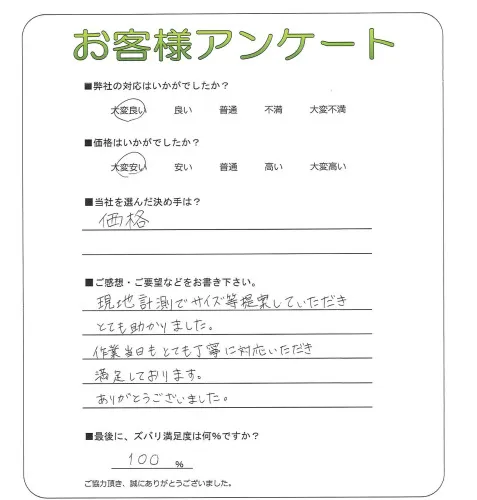 お客様アンケート
■弊社の対応はいかがでしたか？
大変良い 良い 普通 不満 大変不満
■価格はいかがでしたか？
大変安い 安い 普通 高い 大変高い
■当社を選んだ決め手は？
価格
■ご感想・ご要望などをお書き下さい。
現地計測でサイズ等提案していただき
とても助かりました。
作業当日もとても丁寧に対応いただき
満足しております。
ありがとうございました。
■最後に、ズバリ満足度は何%ですか？
100 %
ご協力頂き、誠にありがとうございました。